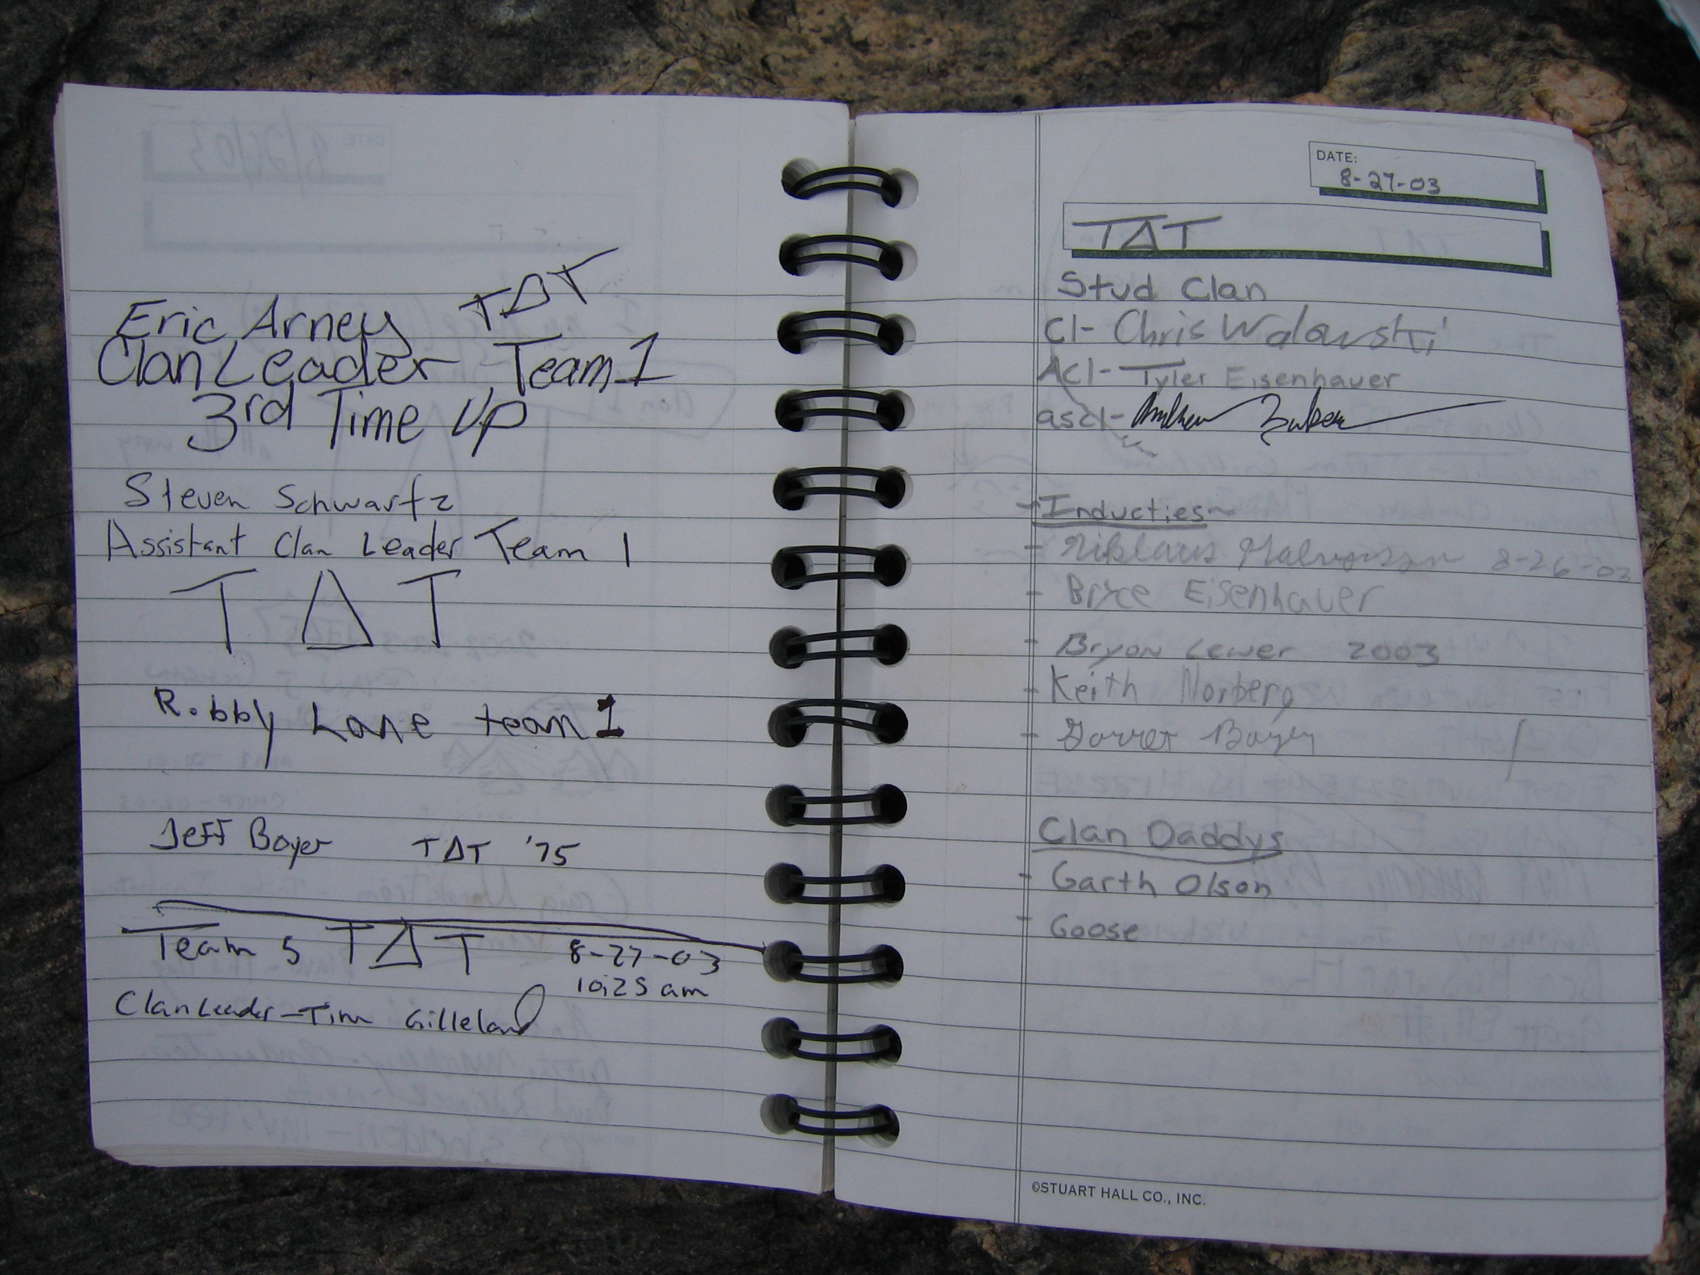 Eric Arney TΔT
Clan Leader Team 1
3rd Time Up
Steven Schwartz
Assistant Clan Leader Team 1
TΔT
Robby Lane team 1
Jeff Boyer TΔT '75
Team 5 TΔT 8-27-03
10:25 am
Clan Leader - Tim Gilleland
DATE:
8-27-03
TΔT
Stud Clan
Cl- Chris Walowski
Acl- Tyler Eisenhauer
ascl- Andrew
- Inducties
- Niklaus 8-26-03
- Bryce Eisenhauer
- Bryon Lewer 2003
- Keith Norberg
- Garret Boyer
Clan Daddys
- Garth Olson
- Goose
©STUART HALL CO., INC.